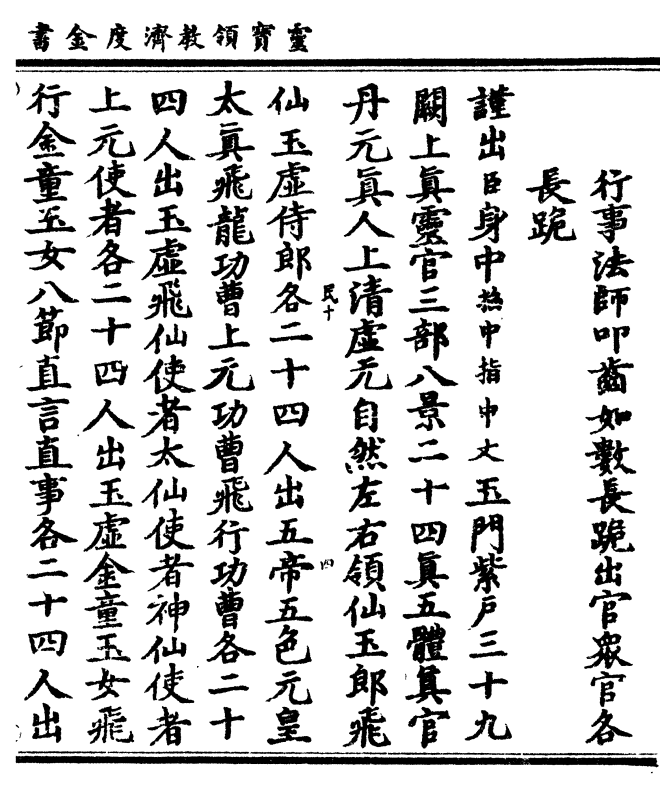 靈寶領教濟度金書
行事法師叩齒如數長跪出官衆官各
長跪
謹出臣身中捻中指中文玉門紫戶三十九
闕上眞靈官三部八景二十四眞五體眞官
丹元眞人上清虛无自然左右領仙玉郎飛
仙玉虛侍郎各二十四人出五帝五色元皇
太眞飛龍功曹上元功曹飛行功曹各二十
四人出玉虛飛仙使者太仙使者神仙使者
上元使者各二十四人出玉虛金童玉女飛
行金童玉女八節直言直事各二十四人出
民十
四